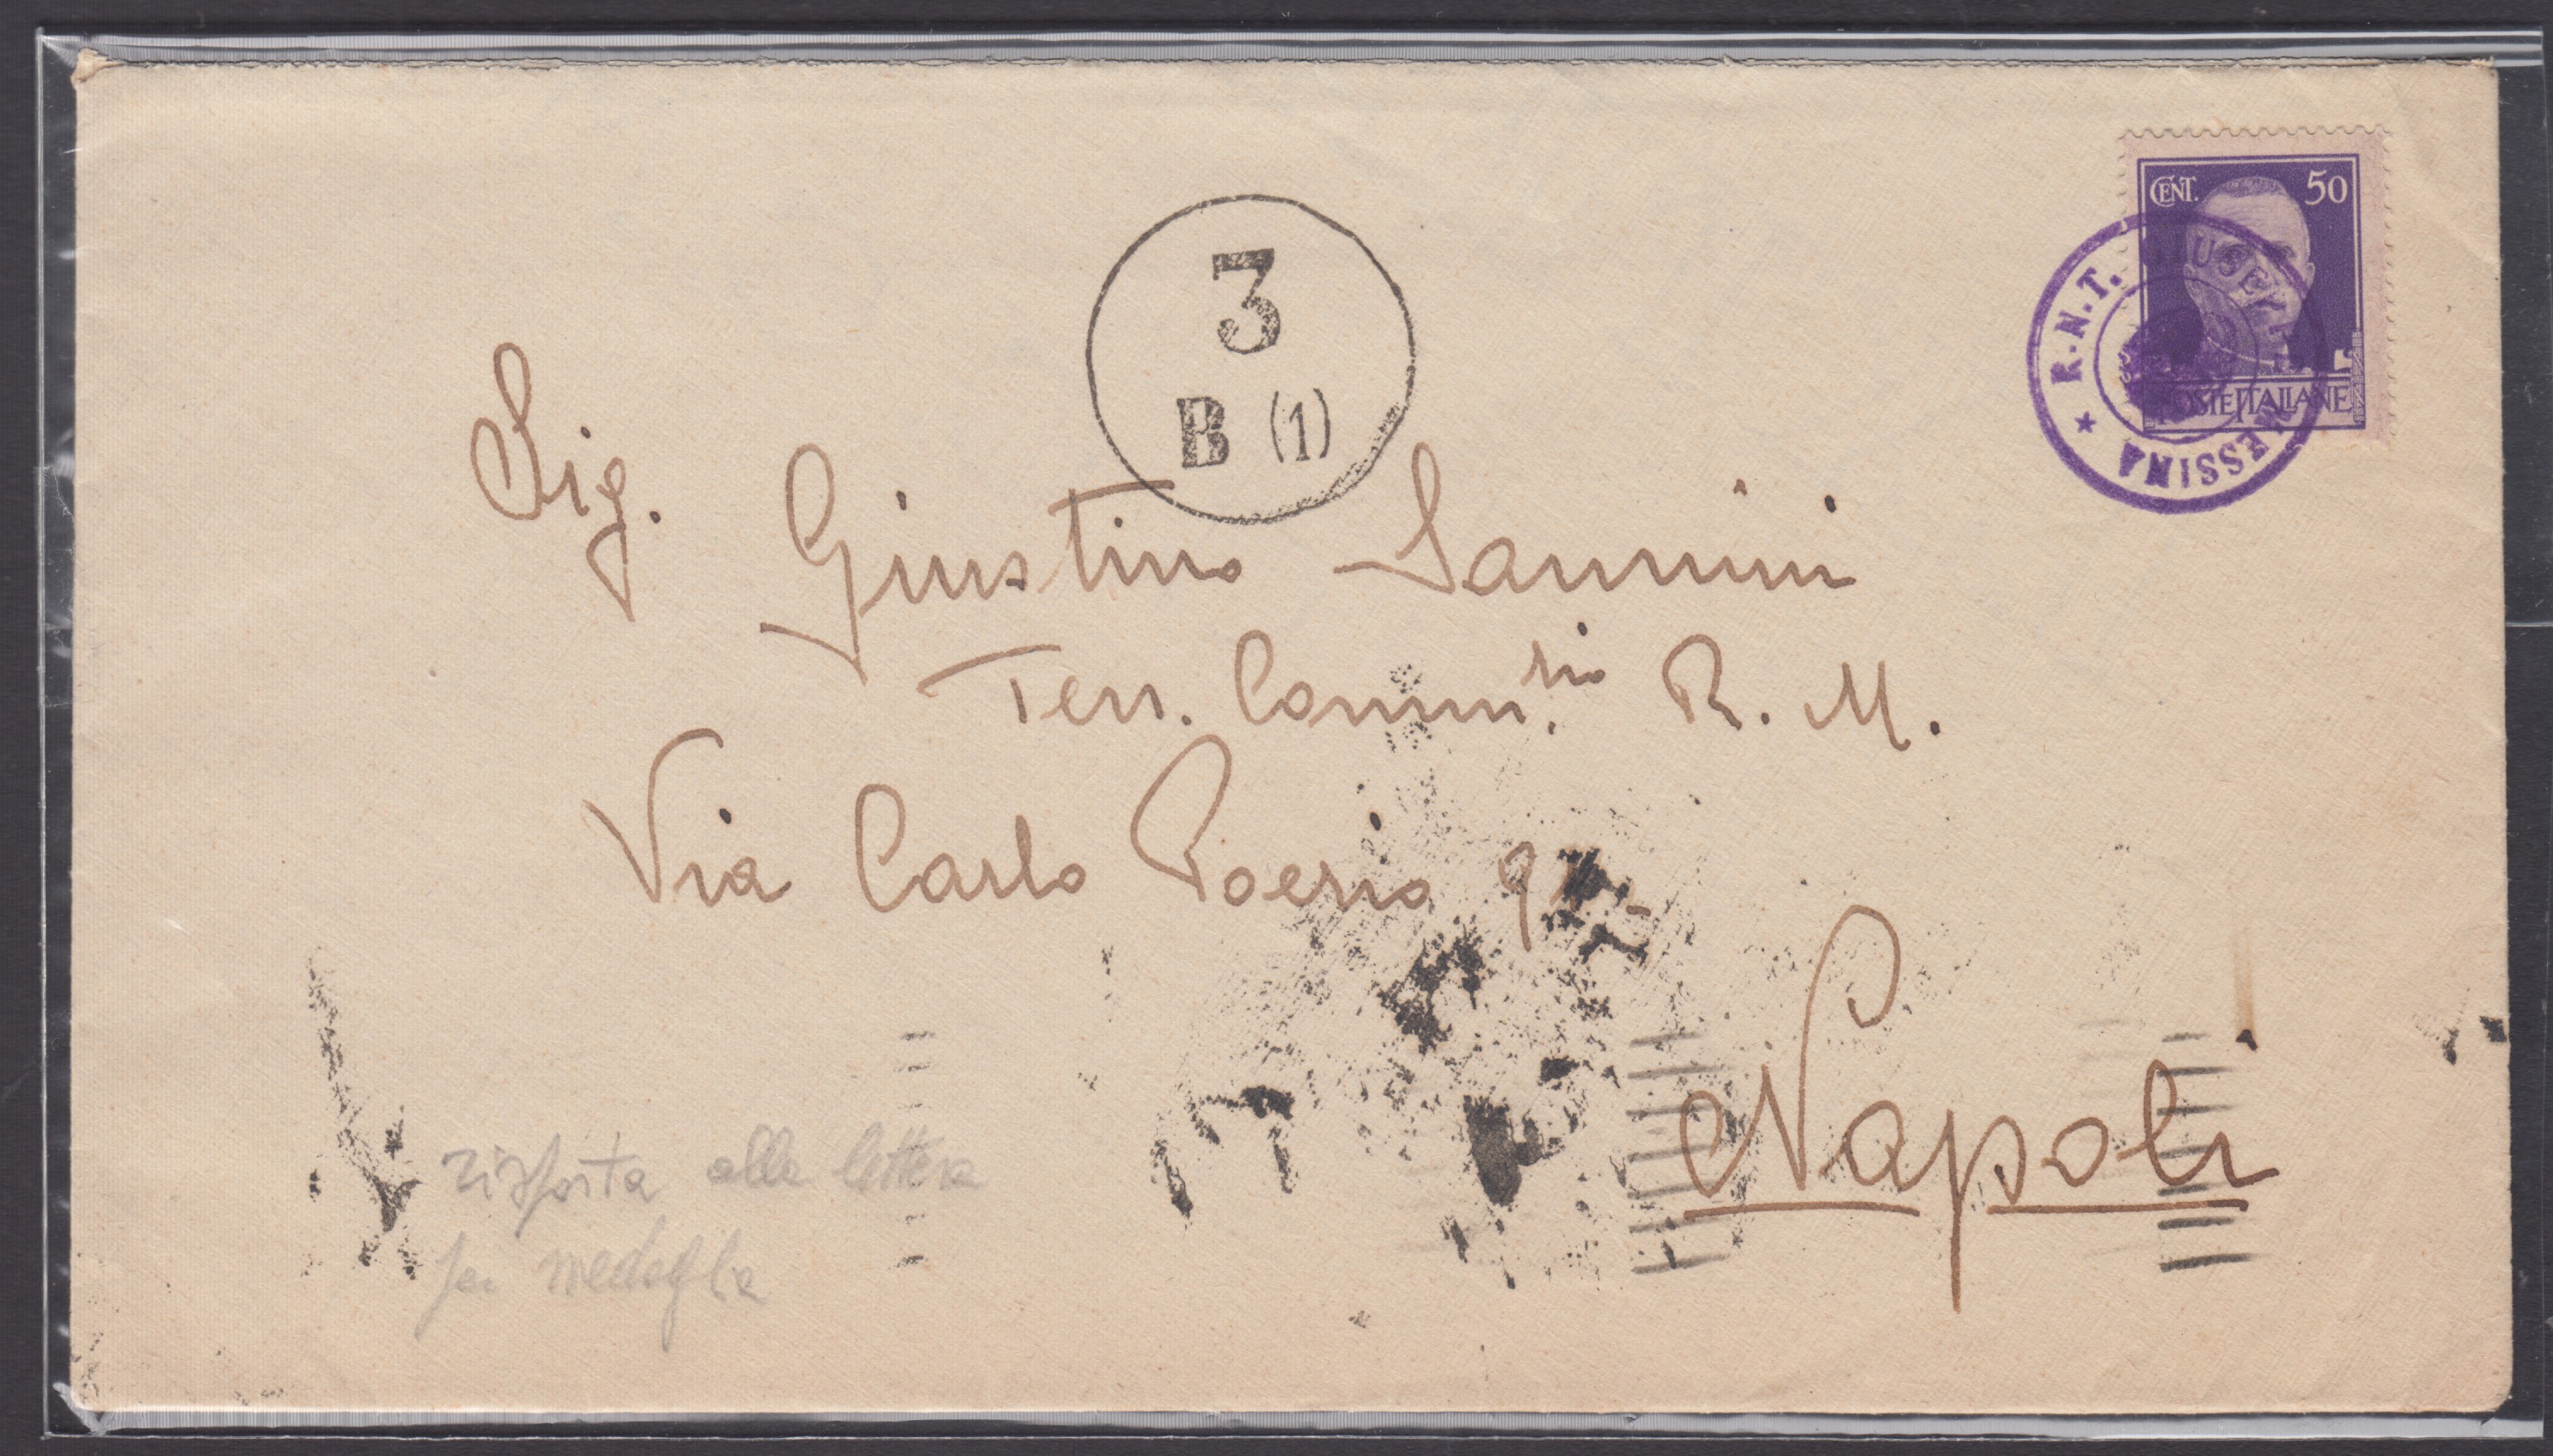 CENT. 50
POSTE ITALIANE
R.N.T. MESSINA
3
B (1)
Sig.
Giustino Sannini
Ten. Comm.rio R. M.
Via Carlo Poerio
Napoli
risposta alla lettera
per medaglia